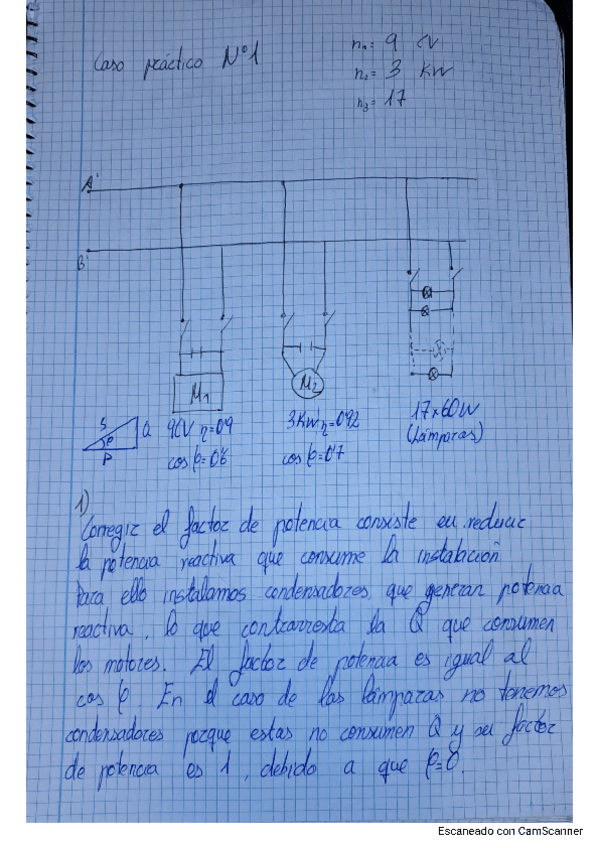 Caso práctico Nº1
n₁ = 9 CV
n₂ = 3 KW
n₃ = 17
A
B
M1
M2
S
Q
φ
P
9CV η=0'9
cos φ=0'6
3KW η=0'92
cos φ=0'7
17x60W
(Lámparas)
1)
Corregir el factor de potencia consiste en reducir
la potencia reactiva que consume la instalación
Para ello instalamos condensadores, que generan potencia
reactiva, lo que contrarresta la Q que consumen
los motores. El factor de potencia es igual al
cos φ. En el caso de las lámparas no tenemos
condensadores porque estas no consumen Q y su factor
de potencia es 1, debido a que φ=0.
Escaneado con CamScanner